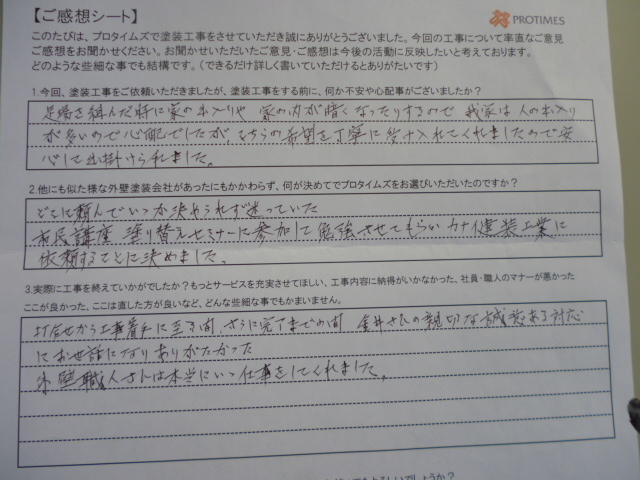 【ご感想シート】
PROTIMES
このたびは、プロタイムズで塗装工事をさせていただき誠にありがとうございました。今回の工事について率直なご意見
ご感想をお聞かせください。お聞かせいただいたご意見・ご感想は今後の活動に反映したいと考えております。
どのような些細な事でも結構です。（できるだけ詳しく書いていただけるとありがたいです）
1.今回、塗装工事をご依頼いただきましたが、塗装工事をする前に、何か不安や心配事がございましたか？
足場を組んだ時に家の出入りや 家の内が暗くなったりするので 我家は人の出入り
が多いので心配でしたが、こちらの希望を丁寧に受け入れてくれましたので安
心して出掛けられました。
2.他にも似た様な外壁塗装会社があったにもかかわらず、何が決めてでプロタイムズをお選びいただいたのですか？
どこに頼んでいいか決められず迷っていた
市民講座 塗り替えセミナーに参加して勉強させてもらい カナイ建装工業に
依頼することに決めました。
3.実際に工事を終えていかがでしたか？もっとサービスを充実させてほしい、工事内容に納得がいかなかった、社員・職人のマナーが悪かった
ここが良かった、ここは直した方が良いなど、どんな些細な事でもかまいません。
打合せから工事着手に至る間、さらに完了までの間 金井さんの親切な誠意ある対応
にお世話になりありがたかった
職人さんは本当にいい仕事をしてくれました。
でしょうか？